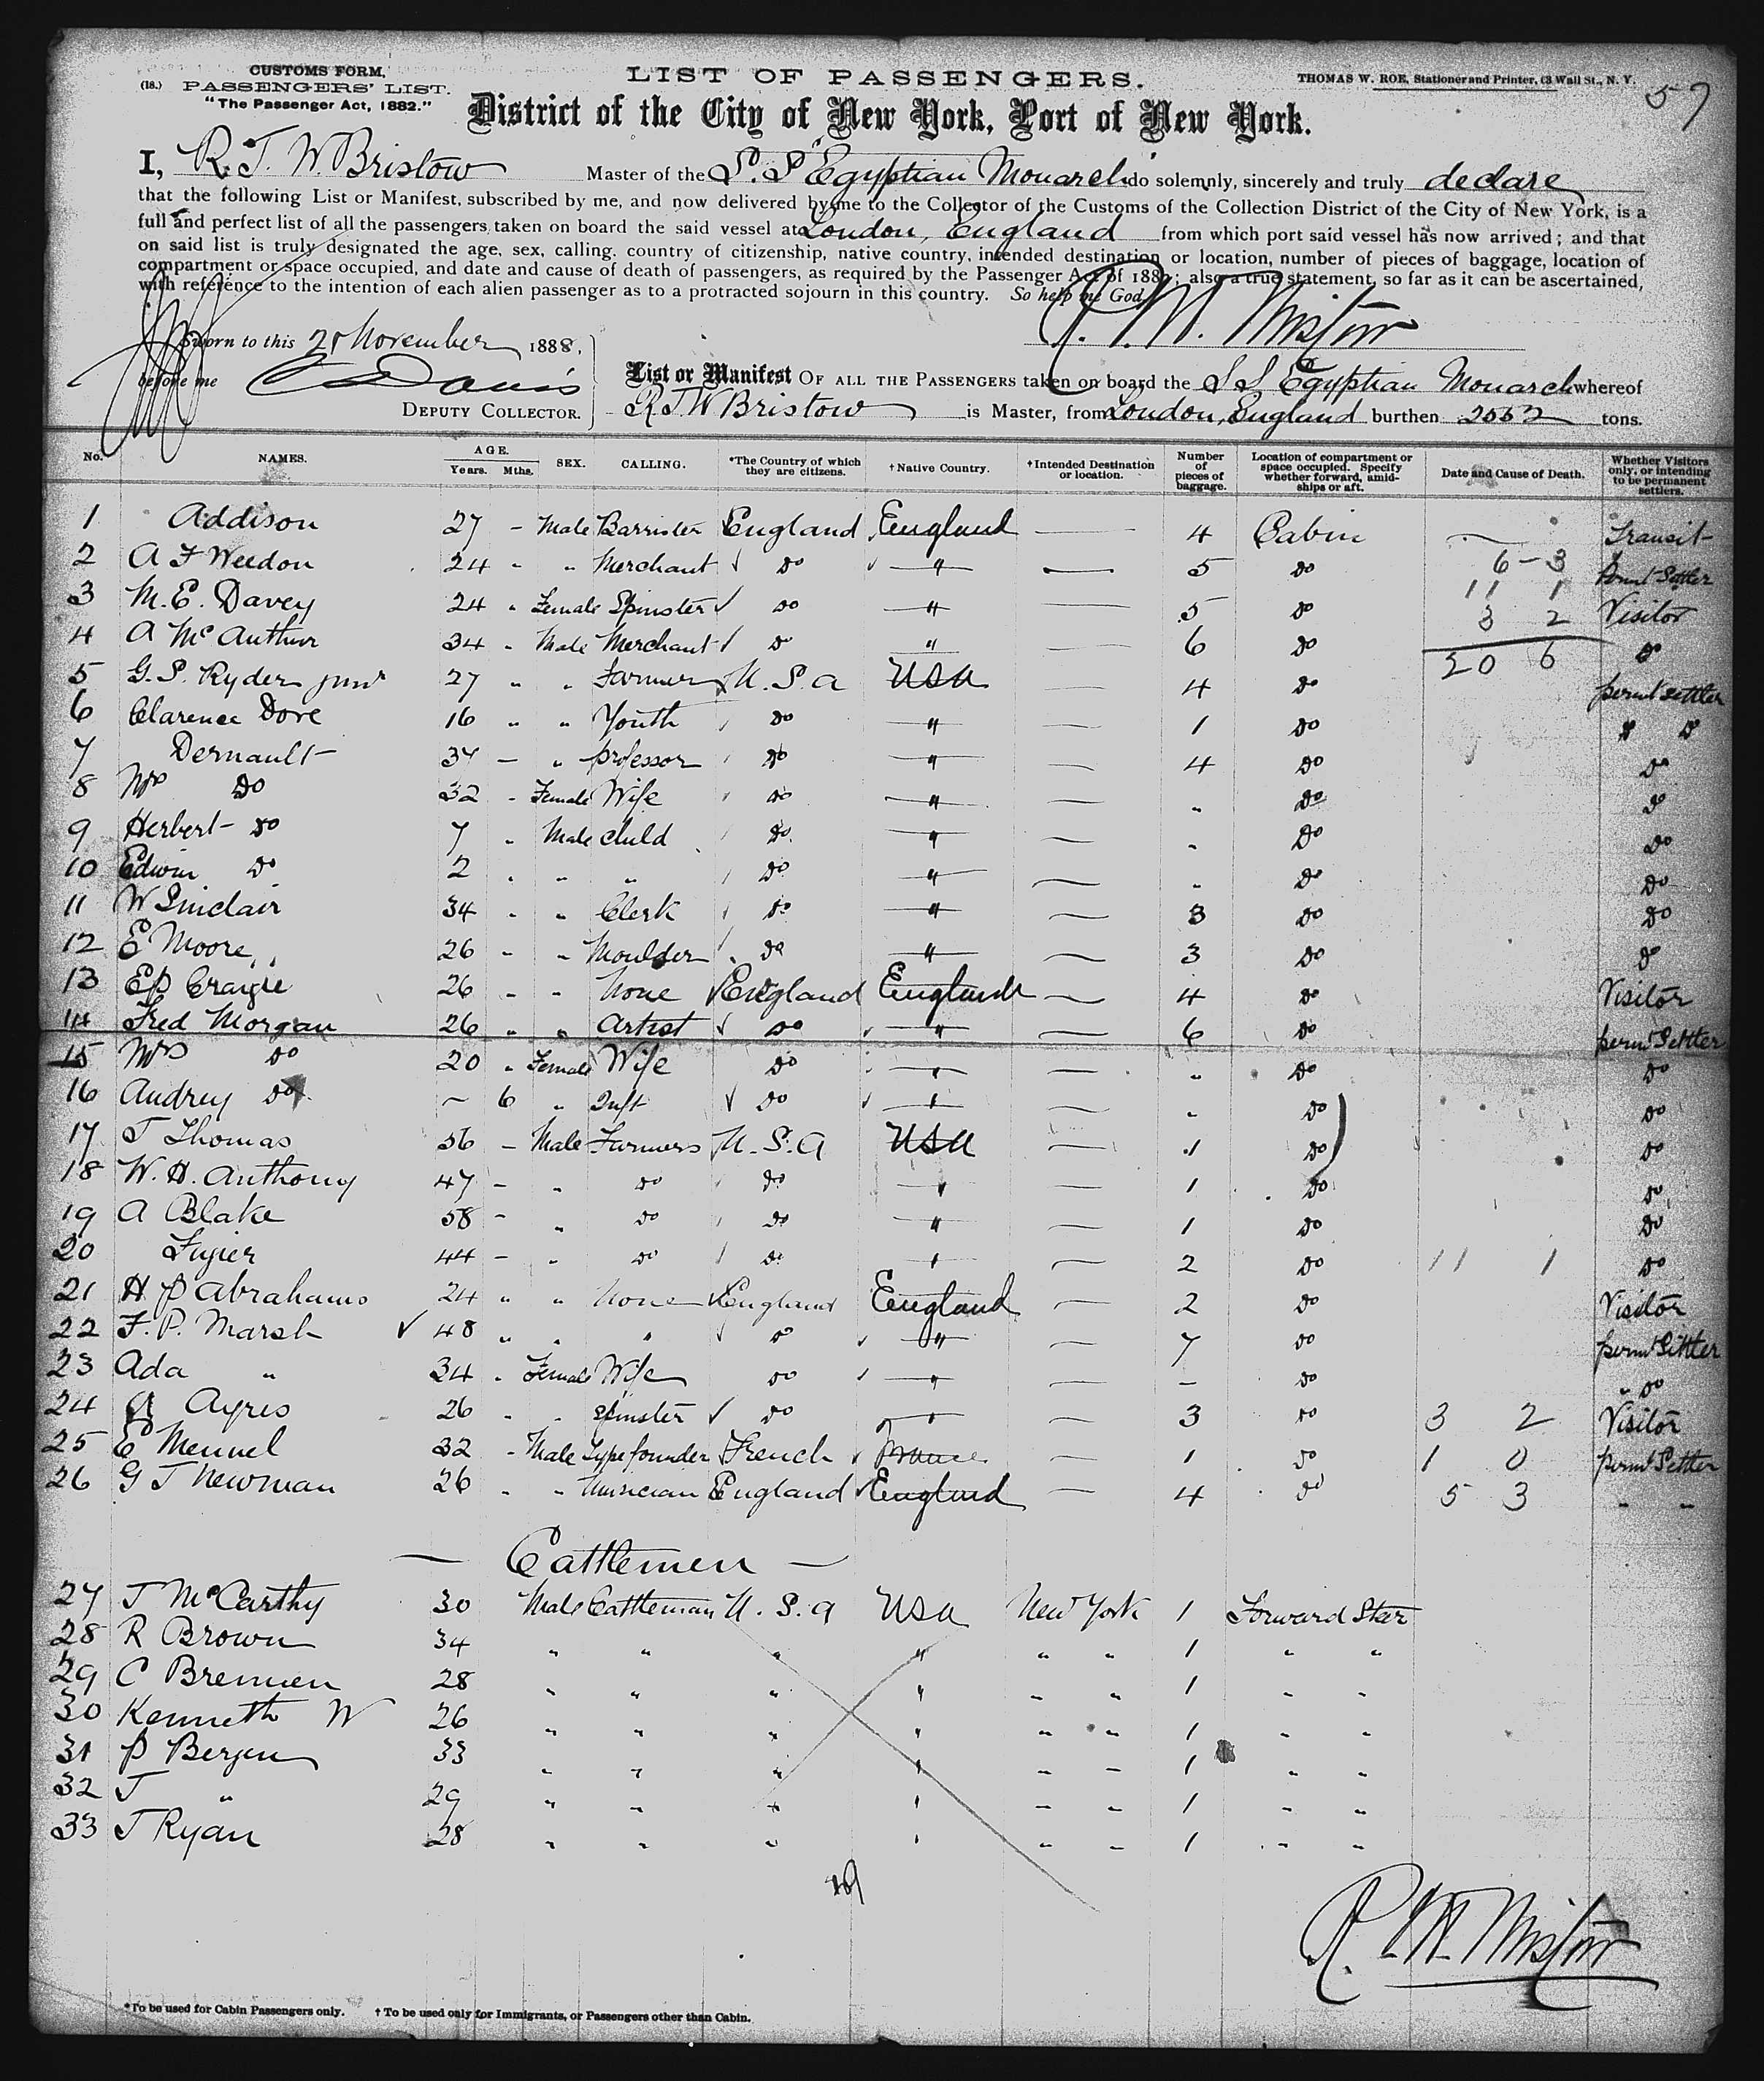 CUSTOMS FORM,
(18.) PASSENGERS' LIST.
"The Passenger Act, 1882."
LIST OF PASSENGERS.
THOMAS W. ROE, Stationer and Printer, 63 Wall St., N. Y.
57
District of the City of New York, Port of New York.
I, R. T. W. Bristow Master of the S. S Egyptian Monarch do solemnly, sincerely and truly declare
that the following List or Manifest, subscribed by me, and now delivered by me to the Collector of the Customs of the Collection District of the City of New York, is a
full and perfect list of all the passengers taken on board the said vessel at London, England from which port said vessel has now arrived; and that
on said list is truly designated the age, sex, calling, country of citizenship, native country, intended destination or location, number of pieces of baggage, location of
compartment or space occupied, and date and cause of death of passengers, as required by the Passenger Act of 1882; also a true statement, so far as it can be ascertained,
with reference to the intention of each alien passenger as to a protracted sojourn in this country. So help me God
Sworn to this November 1888,
before me Davis
DEPUTY COLLECTOR.
List or Manifest OF ALL THE PASSENGERS taken on board the S S Egyptian Monarch whereof
R T W Bristow is Master, from London, England burthen tons.
No. NAMES. AGE. Years. Mths. SEX. CALLING. *The Country of which they are citizens. †Native Country. †Intended Destination or location. Number of pieces of baggage. Location of compartment or space occupied. Specify whether forward, amidships or aft. Date and Cause of Death. Whether Visitors only, or intending to be permanent settlers.
1 Addison 27 - Male Barrister England England — 4 Cabin — Transit
2 A F Weedon 24 " " Merchant do " — 5 do 6-3 permt Settler
3 M. E. Davey 24 " Female Spinster do " — 5 do 11 1 Visitor
4 A McArthur 34 " Male Merchant do " — 6 do 3 2 do
20 6
5 G. S. Ryder junr 27 " " Farmer U. S. a USA — 4 do permt settler
6 Clarence Dove 16 " " Youth do " — 1 do " do
7 Dernault 37 — " professor do " — 4 do do
8 Mrs Do 32 - Female Wife do " — " do do
9 Herbert do 7 " Male child do " — " do do
10 Edwin do 2 " " " do " — " do do
11 W Sinclair 34 " " Clerk do " — 3 do do
12 E Moore 26 " " Moulder do " — 3 do do
13 26 " " None England England — 4 do Visitor
14 Fred Morgan 26 " " Artist do " — 6 do permt Settler
15 Mrs do 20 " Female Wife do " — " do do
16 Audrey do - 6 " Inft do " — " do do
17 T Thomas 56 - Male Farmers U. S. A USA — 1 do do
18 W. H. Anthony 47 - " do do " — 1 do do
19 A Blake 58 - " do do " — 1 do do
20 44 - " do do " — 2 do 11 1 do
21 H P Abrahams 24 " " None England England — 2 do Visitor
22 F. P. Marsh 48 " " " do " — 7 do permt Settler
23 Ada " 34 " Female Wife do " — - do " do
24 Ayres 26 " " Spinster do " — 3 do 3 2 Visitor
25 E Mennel 32 - Male Type founder French France — 1 do 1 0 permt Settler
26 G T Newman 26 " " Musician England England — 4 do 5 3 " "
— Cattlemen —
27 J McCarthy 30 Male Cattleman U. S. a USA New York 1 Forward Steer
28 R Brown 34 " " " " " " 1 " "
29 C Brennen 28 " " " " " " 1 " "
30 Kenneth W 26 " " " " " " 1 " "
31 P Bergen 33 " " " " " " 1 " "
32 J " 29 " " " " " " 1 " "
33 J Ryan 28 " " " " " " 1 " "
*To be used for Cabin Passengers only. †To be used only for Immigrants, or Passengers other than Cabin.